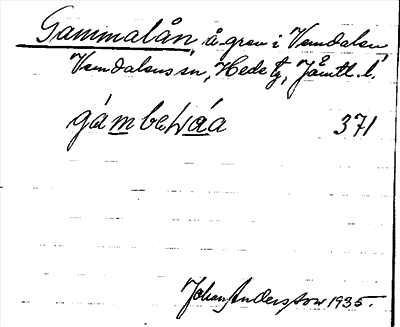 Gammalån, å-gren i Vemdalen,
Vemdalens sn, Hede tg, Jämtl. l.
371
Johan Andersson 1935.